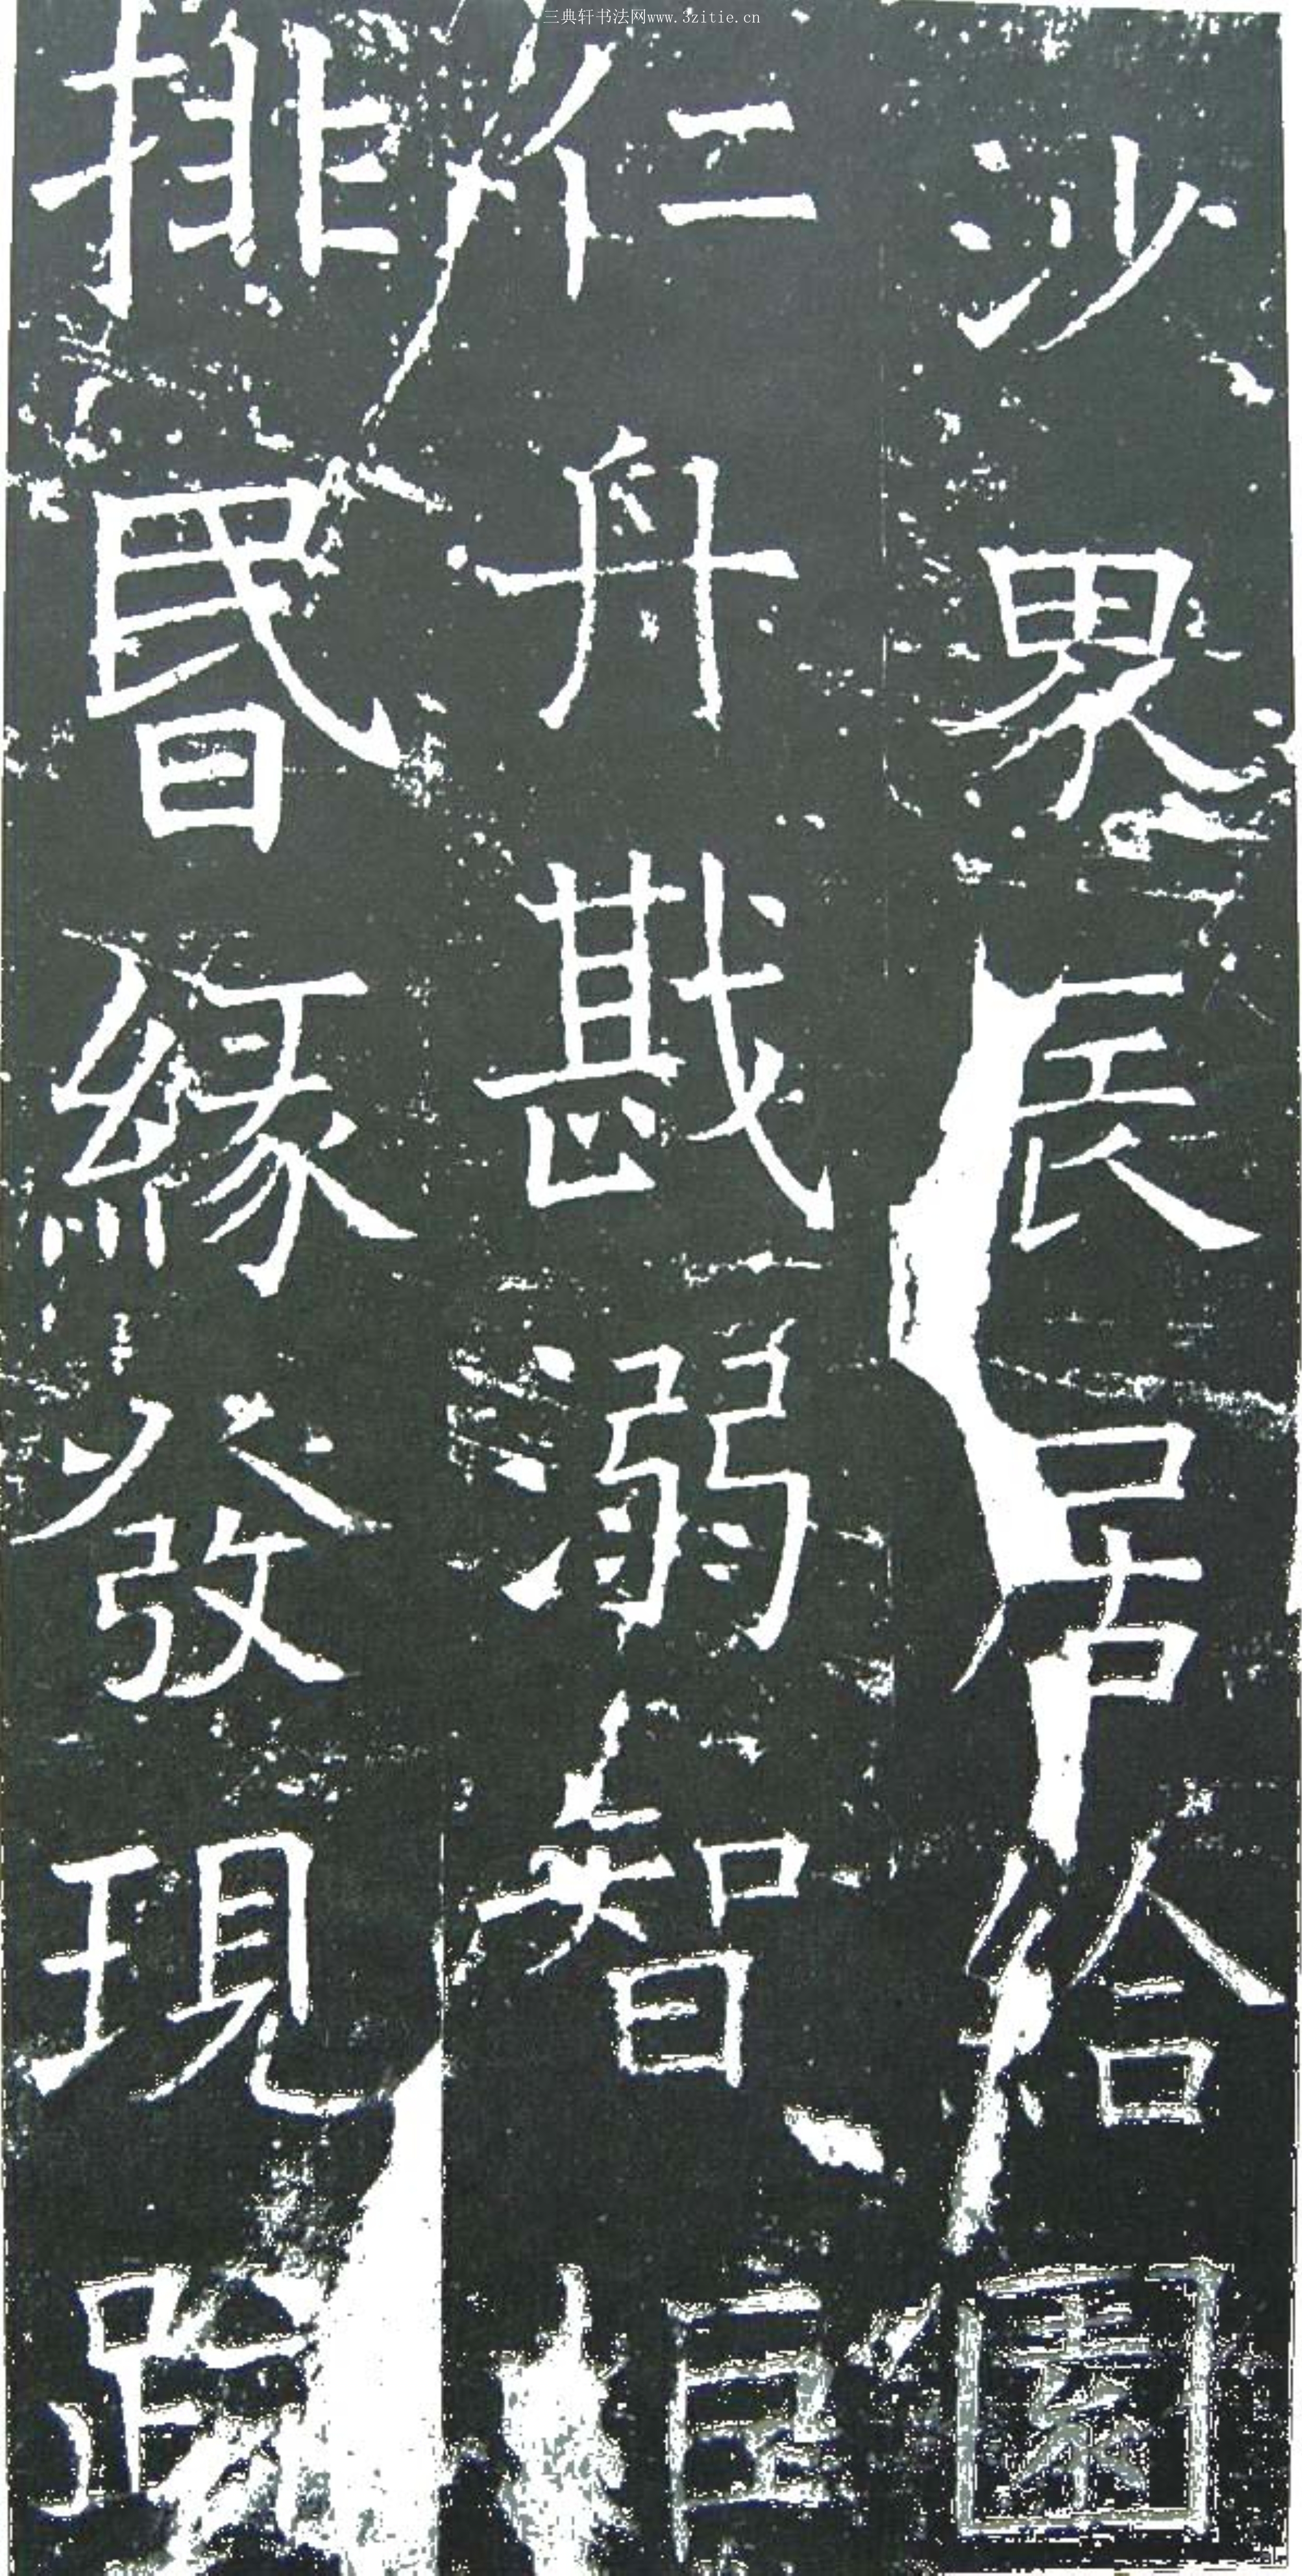 三典轩书法网www.3zitie.cn
沙界長居給園
仁舟戡溺智炬
排昬緣發現跡